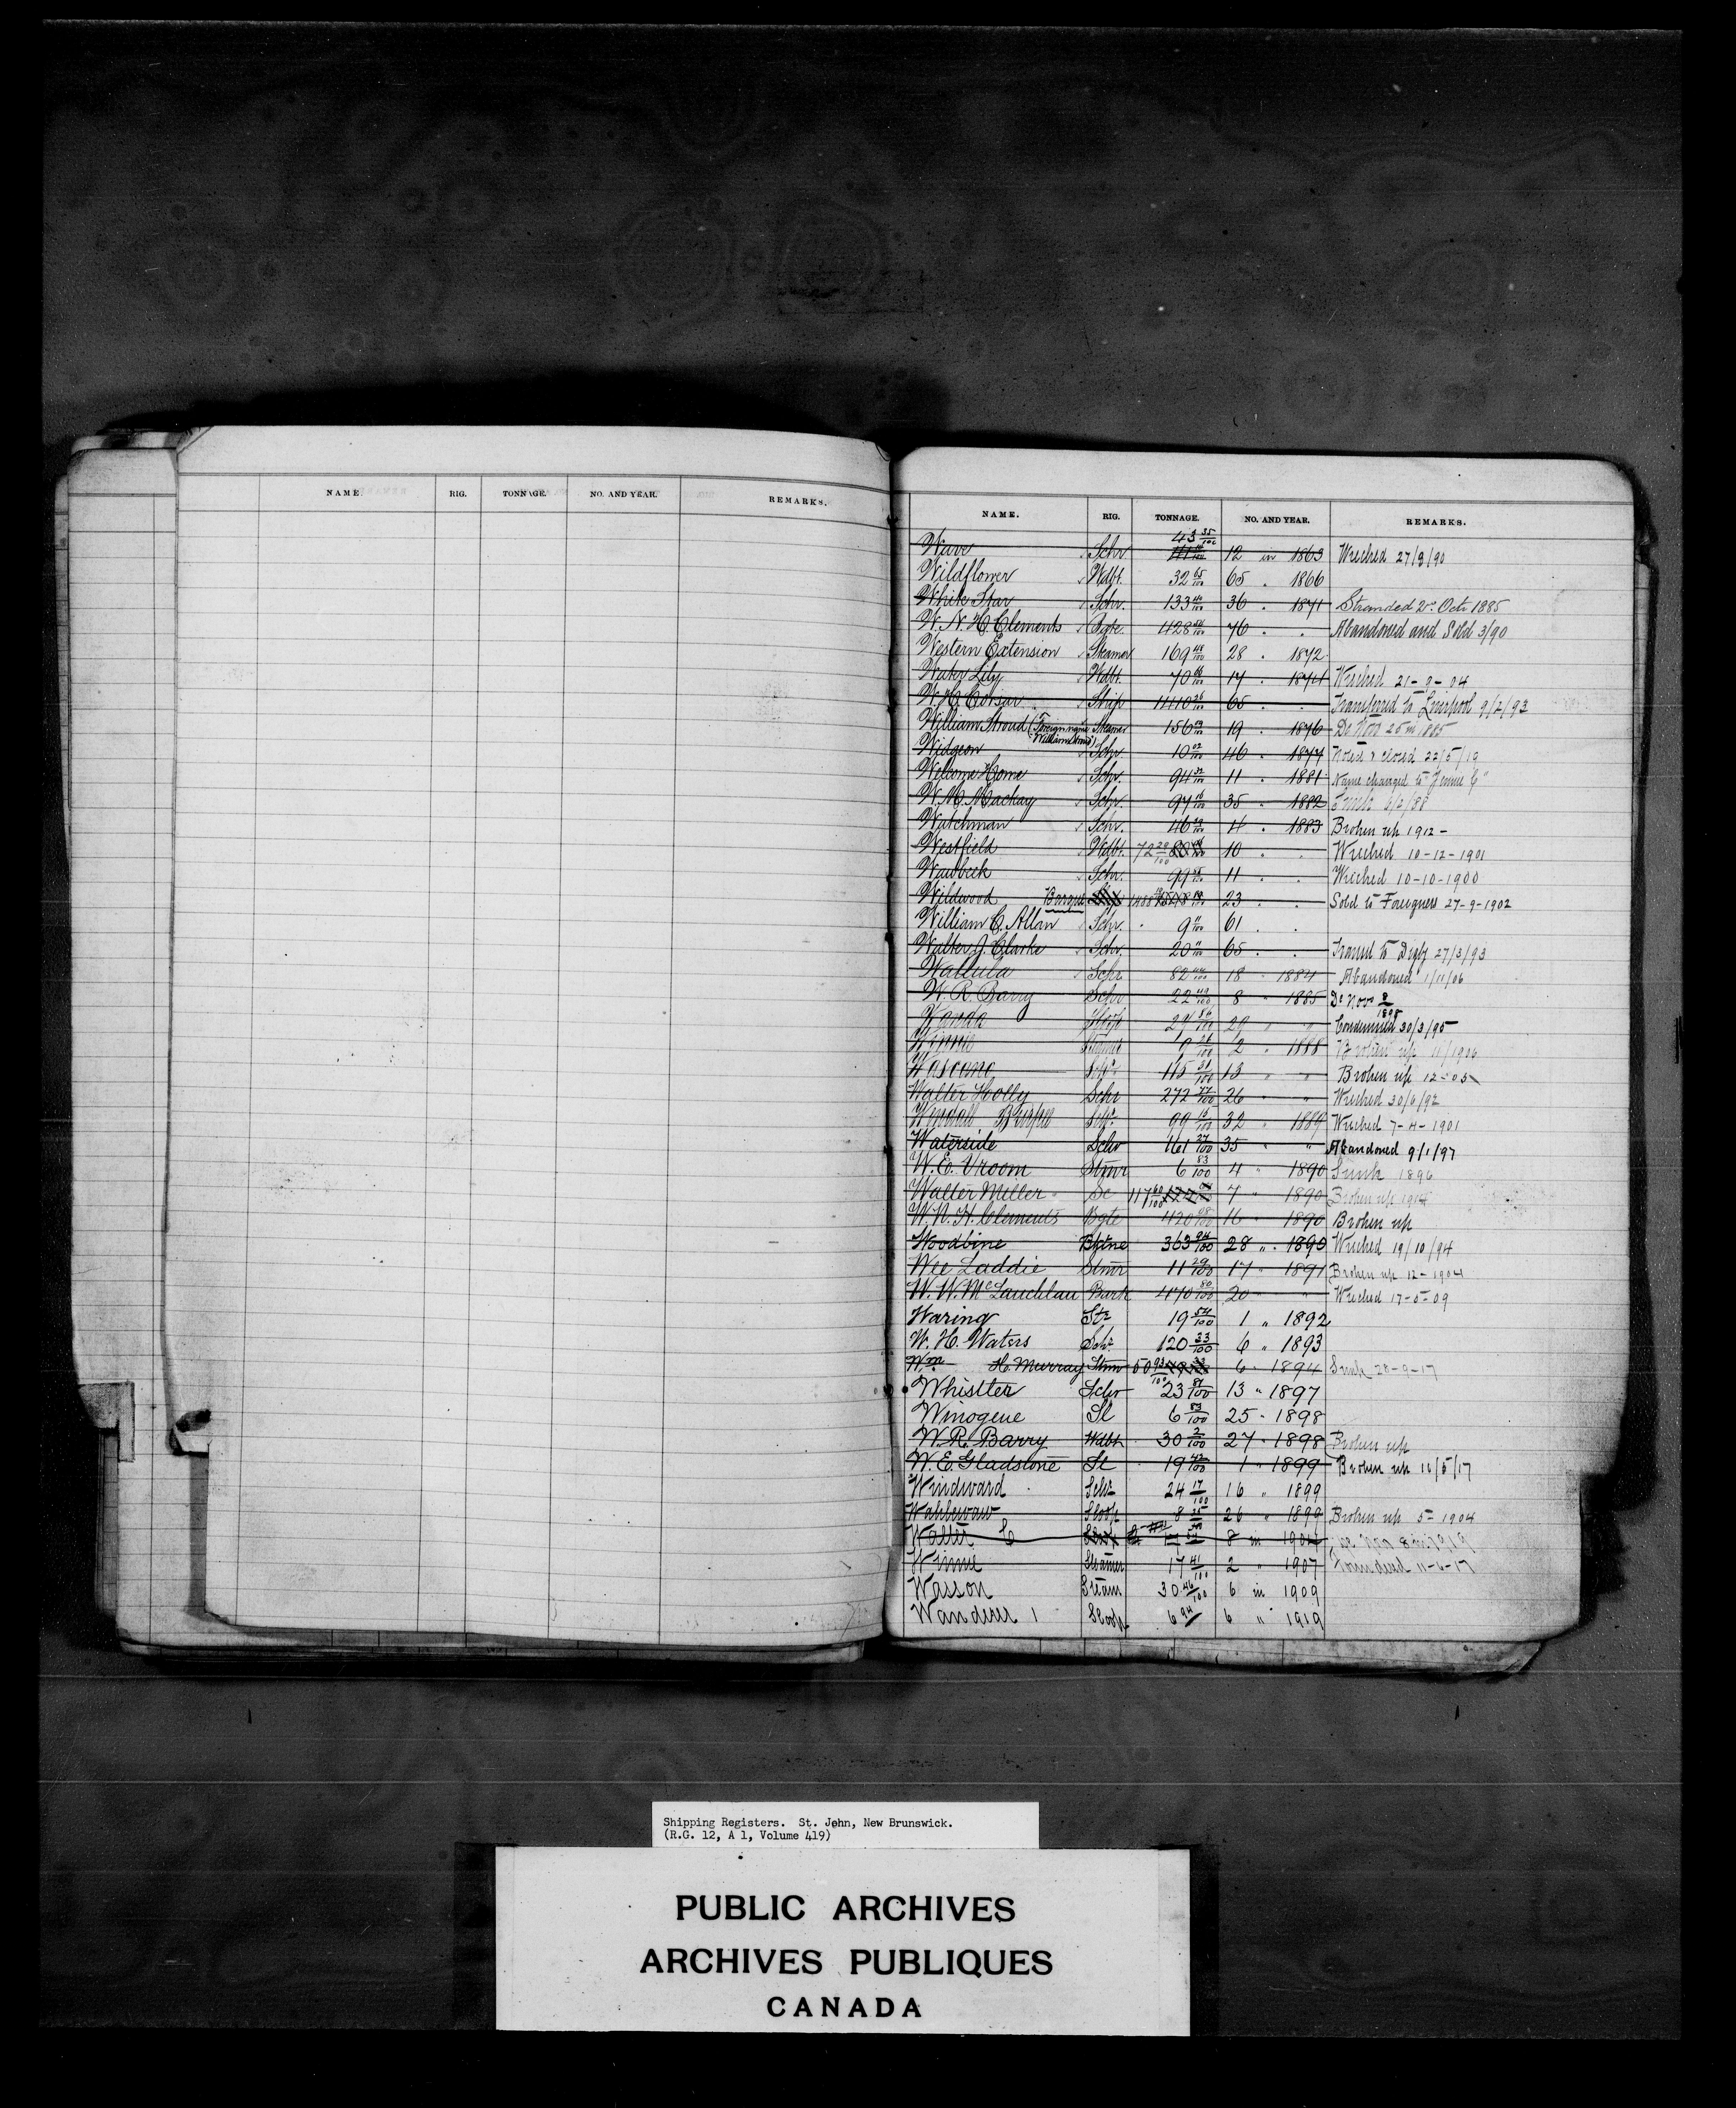 NAME. RIG. TONNAGE. NO. AND YEAR. REMARKS.
NAME. RIG. TONNAGE. NO. AND YEAR. REMARKS.
43 35/100
Wave Schr 12 in 1863 Wrecked 27/3/90
Wildflower Wdbt. 32 65/100 65 " 1866
White Star Schr. 133 36 " 1871 Stranded 2d Octr 1885
W. N. H. Clements Bgte. 428 76 " " Abandoned and Sold 3/90
Western Extension Steamer 169 48/100 28 " 1872
Water Lily Wdbt. 70 17 " 1874 Wrecked 21-9-04
W. H. Corsar Ship 1410 65 " " Transferred to Liverpool 9/2/93
William Stroud (Foreign name Steamer 156 19 " 1876 De Novo 25 in 1885
Widgeon Schr. 10 02/100 46 " 1877 Noted & closed 22/5/19
Welcome Home Schr. 94 11 " 1881 Name changed to "Jennie C"
W. M. Mackay Schr. 97 35 " 1882 Sunk 6/2/88
Watchman Schr. 46 4 " 1883 Broken up 1912 -
Westfield Wdbt. 72 29/100 10 " " Wrecked 10-12-1901
Wawbeek Schr. 99 11 " " Wrecked 10-10-1900
Wildwood Barque Ship 1488 23 " " Sold to Foreigners 27-9-1902
William C. Allan Schr. 9 61 " "
Walter J. Clarke Schr. 20 65 " " Transd to Digby 27/3/93
Wallula Schr 82 18 " 1884 Abandoned 1/11/06
W. R. Barry Schr 22 49/100 8 " 1885 De Novo 2/1898
Wanda Sloop 24 86/100 29 " " Condemned 30/3/95
Winnie Steamer 9 2 " 1888 Broken up 11/1906
Wascano Schr 115 31/100 13 " " Broken up 12-05
Walter Holly Schr 272 77/100 26 " " Wrecked 30/6/92
Wendall Burpee Schr 99 15/100 32 " 1889 Wrecked 7-4-1901
Waterside Schr 161 27/100 35 " " Abandoned 9/1/97
W. E. Vroom Stmr 6 83/100 4 " 1890 Sunk 1896
Walter Miller Sc 117 60/100 7 " 1890 Broken up 1914
W. N. H. Clements Bgte 420 98/100 16 " 1890 Broken up
Woodbine Bktne 363 94/100 28 " 1890 Wrecked 19/10/94
Wee Laddie Stmr 11 29/100 17 " 1891 Broken up 12-1904
W. W. McLauchlan Bark 470 80/100 20 " " Wrecked 17-5-09
Waring Str 19 54/100 1 " 1892
W. H. Waters Schr 120 33/100 6 " 1893
Wm H. Murray Stmr 50 93/100 6 " 1894 Sunk 28-9-17
Whistler Schr 23 87/100 13 " 1897
Winogene Sl 6 83/100 25 " 1898
W. R. Barry Wdbt 30 2/100 27 " 1898 Broken up
W. E. Gladstone Sl 19 42/100 1 " 1899 Broken up 11/5/17
Windward Schr 24 17/100 16 " 1899
Wahlewaw Sloop 8 35 26 " 1899 Broken up 5-1904
Walter C 8 in 1904
Winnie Steamer 17 41/100 2 " 1907 Foundered 11-6-17
Wasson Steam 30 46/100 6 in 1909
Wanderer 1 Sloop 6 94 6 " 1919
Shipping Registers. St. John, New Brunswick.
(R.G. 12, A 1, Volume 419)
PUBLIC ARCHIVES
ARCHIVES PUBLIQUES
CANADA